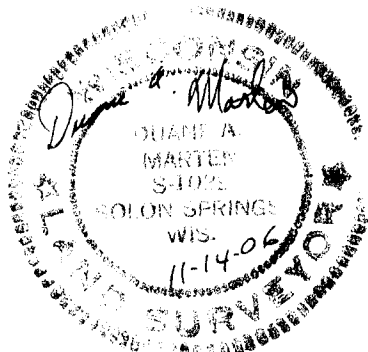 WISCONSIN
Duane A. Marten
DUANE A.
MARTEN
SOLON SPRINGS
WIS.
11-14-06
LAND SURVEYOR